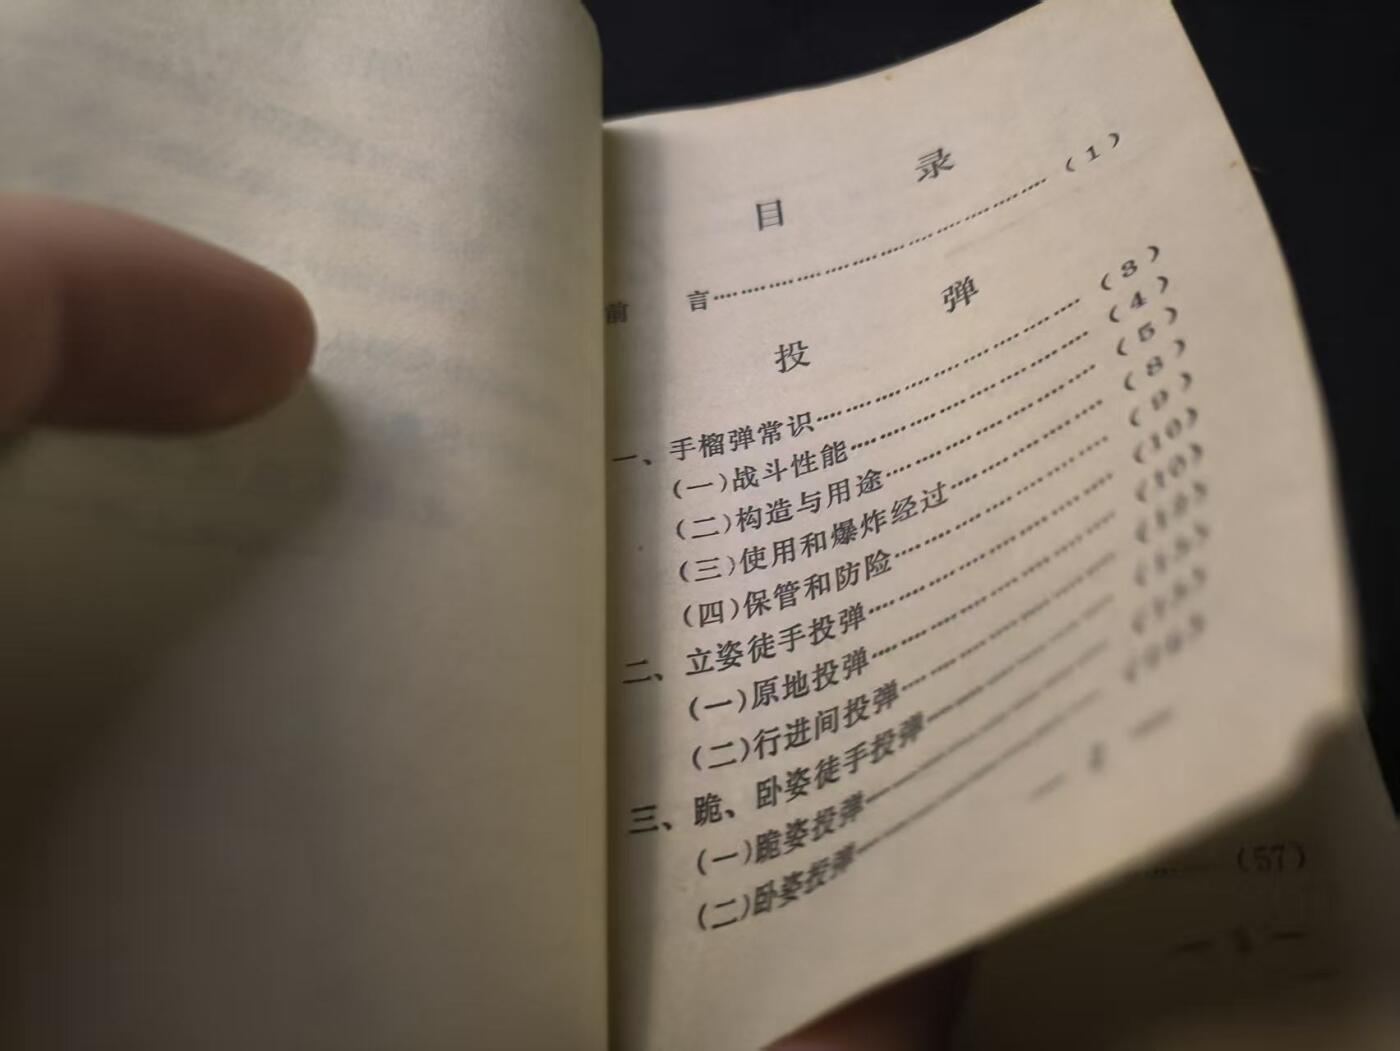 目 录
前 言……………………………(1)
投 弹
一、手榴弹常识……………………………(3)
(一)战斗性能……………………………(4)
(二)构造与用途……………………………(5)
(三)使用和爆炸经过……………………………(8)
(四)保管和防险……………………………(9)
二、立姿徒手投弹……………………………(10)
(一)原地投弹……………………………(10)
(二)行进间投弹……………………………
三、跪、卧姿徒手投弹……………………………
(一)跪姿投弹……………………………
(二)卧姿投弹……………………………
(57)